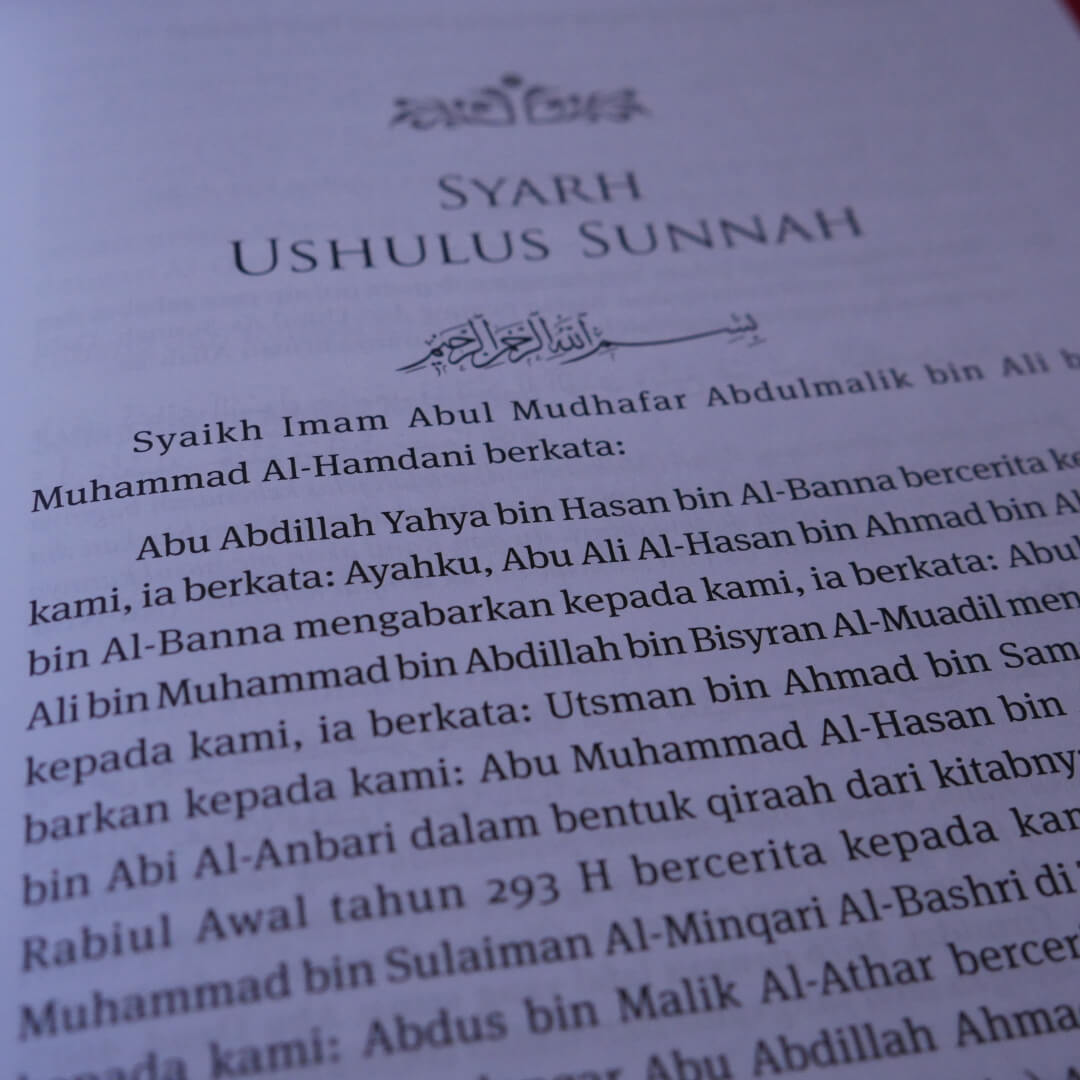 SYARH
USHULUS SUNNAH
بِسْمِ اللَّهِ الرَّحْمَنِ الرَّحِيمِ
Syaikh Imam Abul Mudhafar Abdulmalik bin Ali b
Muhammad Al-Hamdani berkata:
Abu Abdillah Yahya bin Hasan bin Al-Banna bercerita ke
kami, ia berkata: Ayahku, Abu Ali Al-Hasan bin Ahmad bin Al
bin Al-Banna mengabarkan kepada kami, ia berkata: Abul
Ali bin Muhammad bin Abdillah bin Bisyran Al-Muadil men
kepada kami, ia berkata: Utsman bin Ahmad bin Sam
barkan kepada kami: Abu Muhammad Al-Hasan bin
bin Abi Al-Anbari dalam bentuk qiraah dari kitabny
Rabiul Awal tahun 293 H bercerita kepada kam
Muhammad bin Sulaiman Al-Minqari Al-Bashri di
kepada kami: Abdus bin Malik Al-Athar bercer
Abu Abdillah Ahma